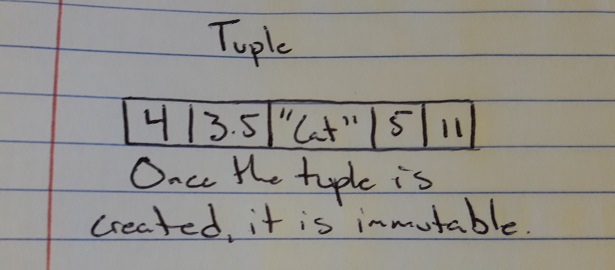 Tuple
4 3.5 "Cat" 5 11
Once the tuple is
created, it is immutable.